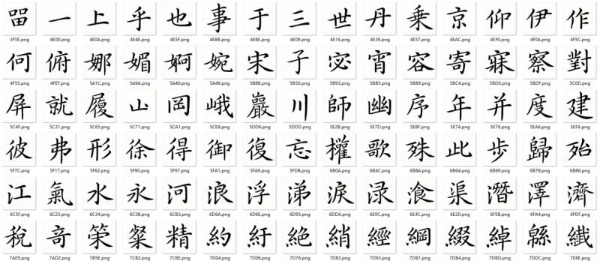 㽞 一 上 乎 也 事 于 三 世 丹 乗 京 仰 伊 作
3F5E.png 4E00.png 4E0A.png 4E4E.png 4E5F.png 4E8B.png 4E8E.png 4E09.png 4E16.png 4E39.png 4E57.png 4EAC.png 4EF0.png 4F0A.png 4F5C.png
何 俯 娜 媚 婀 婉 宋 子 宓 宵 容 寄 寐 察 對
4F55.png 4FEF.png 5A1C.png 5A9A.png 5A40.png 5A49.png 5B8B.png 5B50.png 5B93.png 5BB5.png 5BB9.png 5BC4.png 5BD0.png 5BDF.png 5C0D.png
屏 就 履 山 岡 峨 巖 川 師 幽 序 年 并 度 建
5C4F.png 5C31.png 5C65.png 5C71.png 5CA1.png 5CE8.png 5DD6.png 5DDD.png 5E2B.png 5E7D.png 5E8F.png 5E74.png 5E76.png 5EA6.png 5EFA.png
彼 弗 形 徐 得 御 復 忘 權 歌 殊 此 步 歸 殆
5F7C.png 5F17.png 5F62.png 5F90.png 5F97.png 5FA1.png 5FA9.png 5FD8.png 6B0A.png 6B4C.png 6B8A.png 6B64.png 6B65.png 6B78.png 6B86.png
江 氣 水 永 河 浪 浮 涕 淚 渌 湌 渠 潛 澤 濟
6C5F.png 6C23.png 6C34.png 6C38.png 6CB3.png 6D6A.png 6D6E.png 6D95.png 6DDA.png 6E0C.png 6E4C.png 6E20.png 6F5B.png 6FA4.png 6FDF.png
稅 竒 策 粲 精 約 紆 絕 綃 經 綱 綴 綽 緜 纎
7A05.png 7AD2.png 7B56.png 7CB2.png 7CBE.png 7D04.png 7D06.png 7D55.png 7D83.png 7D93.png 7DB1.png 7DB4.png 7DBD.png 7DDC.png 7E8E.png